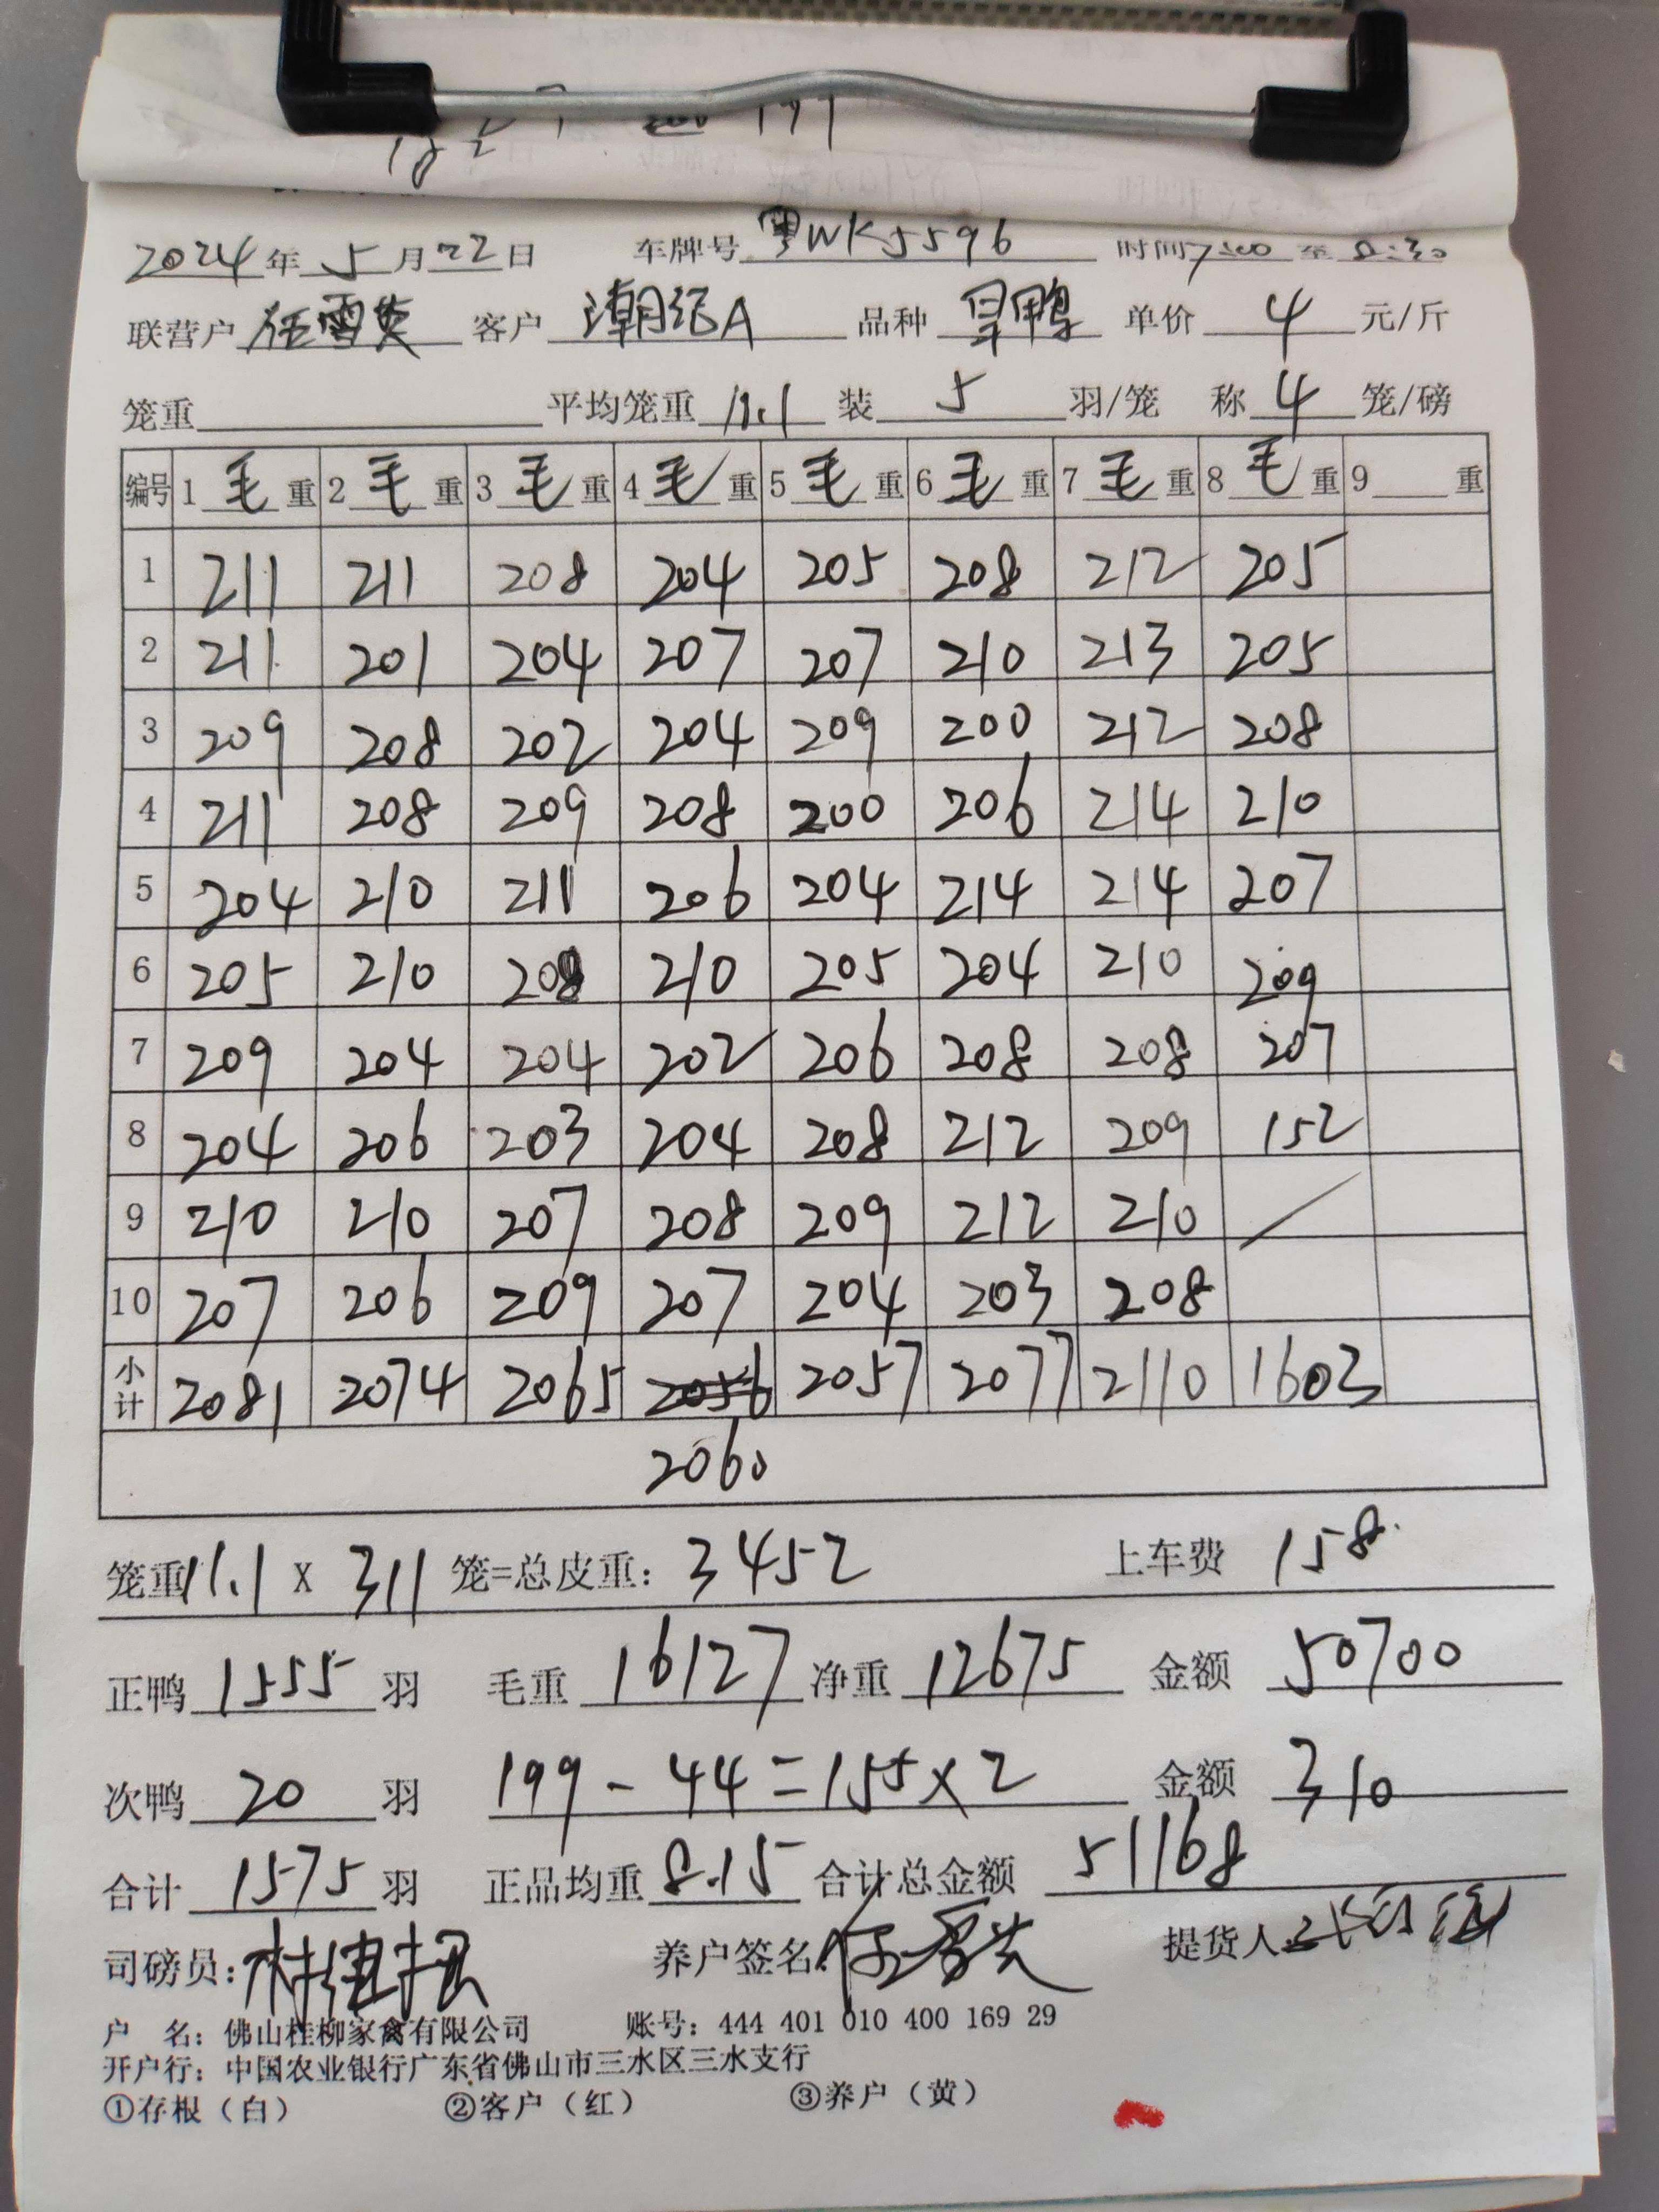 199
2024年5月22日 车牌号粤WK5596 时间7:00至
联营户任雪英 客户潮记A 品种旱鸭 单价4元/斤
笼重 平均笼重11.1 装5羽/笼 称4笼/磅
编号 1毛重 2毛重 3毛重 4毛重 5毛重 6毛重 7毛重 8毛重 9重
1 211 211 208 204 205 208 212 205
2 211 201 204 207 207 210 213 205
3 209 208 202 204 209 200 212 208
4 211 208 209 208 200 206 214 210
5 204 210 211 206 204 214 214 207
6 205 210 208 210 205 204 210 209
7 209 204 204 202 206 208 208 207
8 204 206 203 204 208 212 209 152
9 210 210 207 208 209 212 210 /
10 207 206 209 207 204 203 208
小计 2081 2074 2065 2056 2057 2077 2110 1603
2060
笼重11.1 X 311笼=总皮重:3452 上车费158
正鸭1555羽 毛重16127净重12675 金额50700
次鸭20羽 199-44=155×2 金额310
合计1575羽 正品均重8.15 合计总金额51168
司磅员: 养户签名:任雪英 提货人
户 名:佛山桂柳家禽有限公司 账号:444 401 010 400 169 29
开户行:中国农业银行广东省佛山市三水区三水支行
①存根(白) ②客户(红) ③养户(黄)